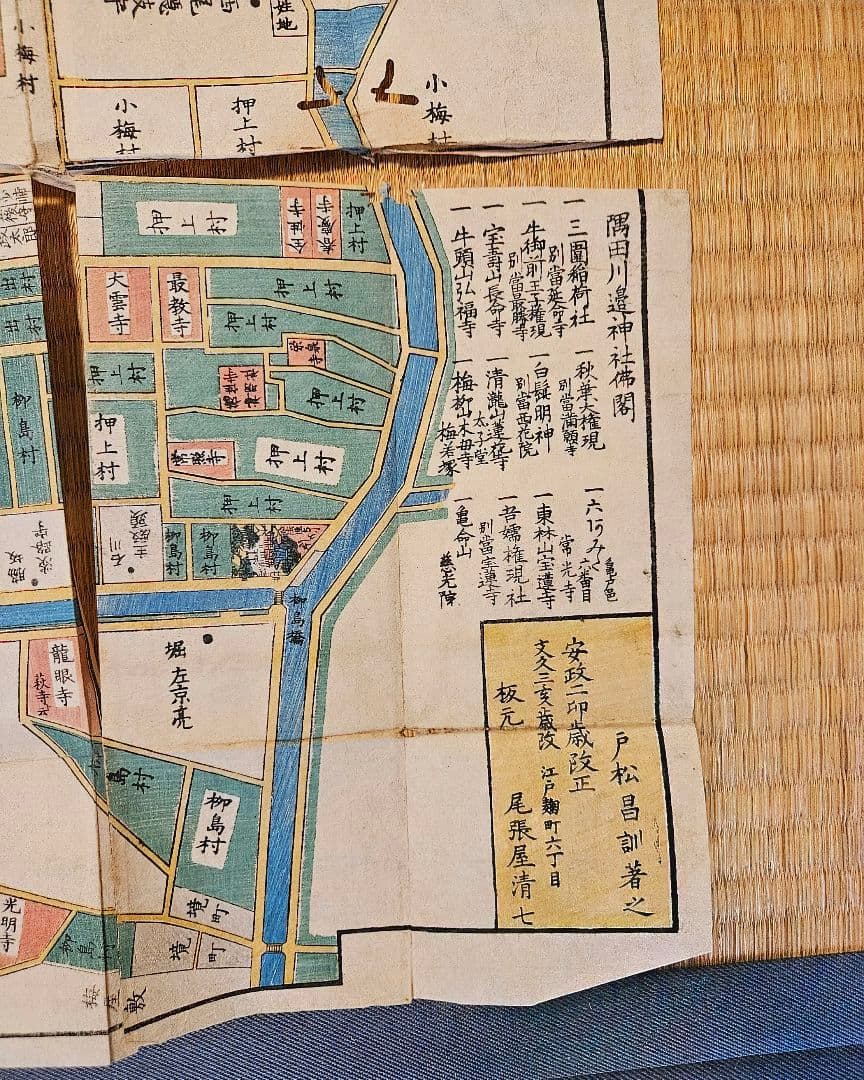 小梅村
小梅村
押上村
小梅村
隅田川邉神社佛閣
一 三圍稲荷社
別當延命寺
一 秋葉大権現
別當満願寺
一 六阿みた
六番目
亀戸邑
常光寺
一 牛御前王子権現
別當最勝寺
一 白髭明神
別當西花院
一 東林山宝蓮寺
一 宝壽山長命寺
一 清瀧山蓮花寺
太子堂
一 吾嬬権現社
別當宝蓮寺
一 牛頭山弘福寺
一 梅柳山木母寺
梅若塚
一 亀命山
慈光院
戸松昌訓著之
安政二卯歳改正
文久三亥歳改
江戸麹町六丁目
板元
尾張屋清七
押上村
押上村
大雲寺
最教寺
押上村
押上村
押上村
押上村
押上村
押上村
押上村
柳島村
常照寺
柳島村
柳島村
柳島橋
龍眼寺
萩寺
堀左京亮
島村
柳島村
境町
境町
光明寺
柳島
梅屋敷